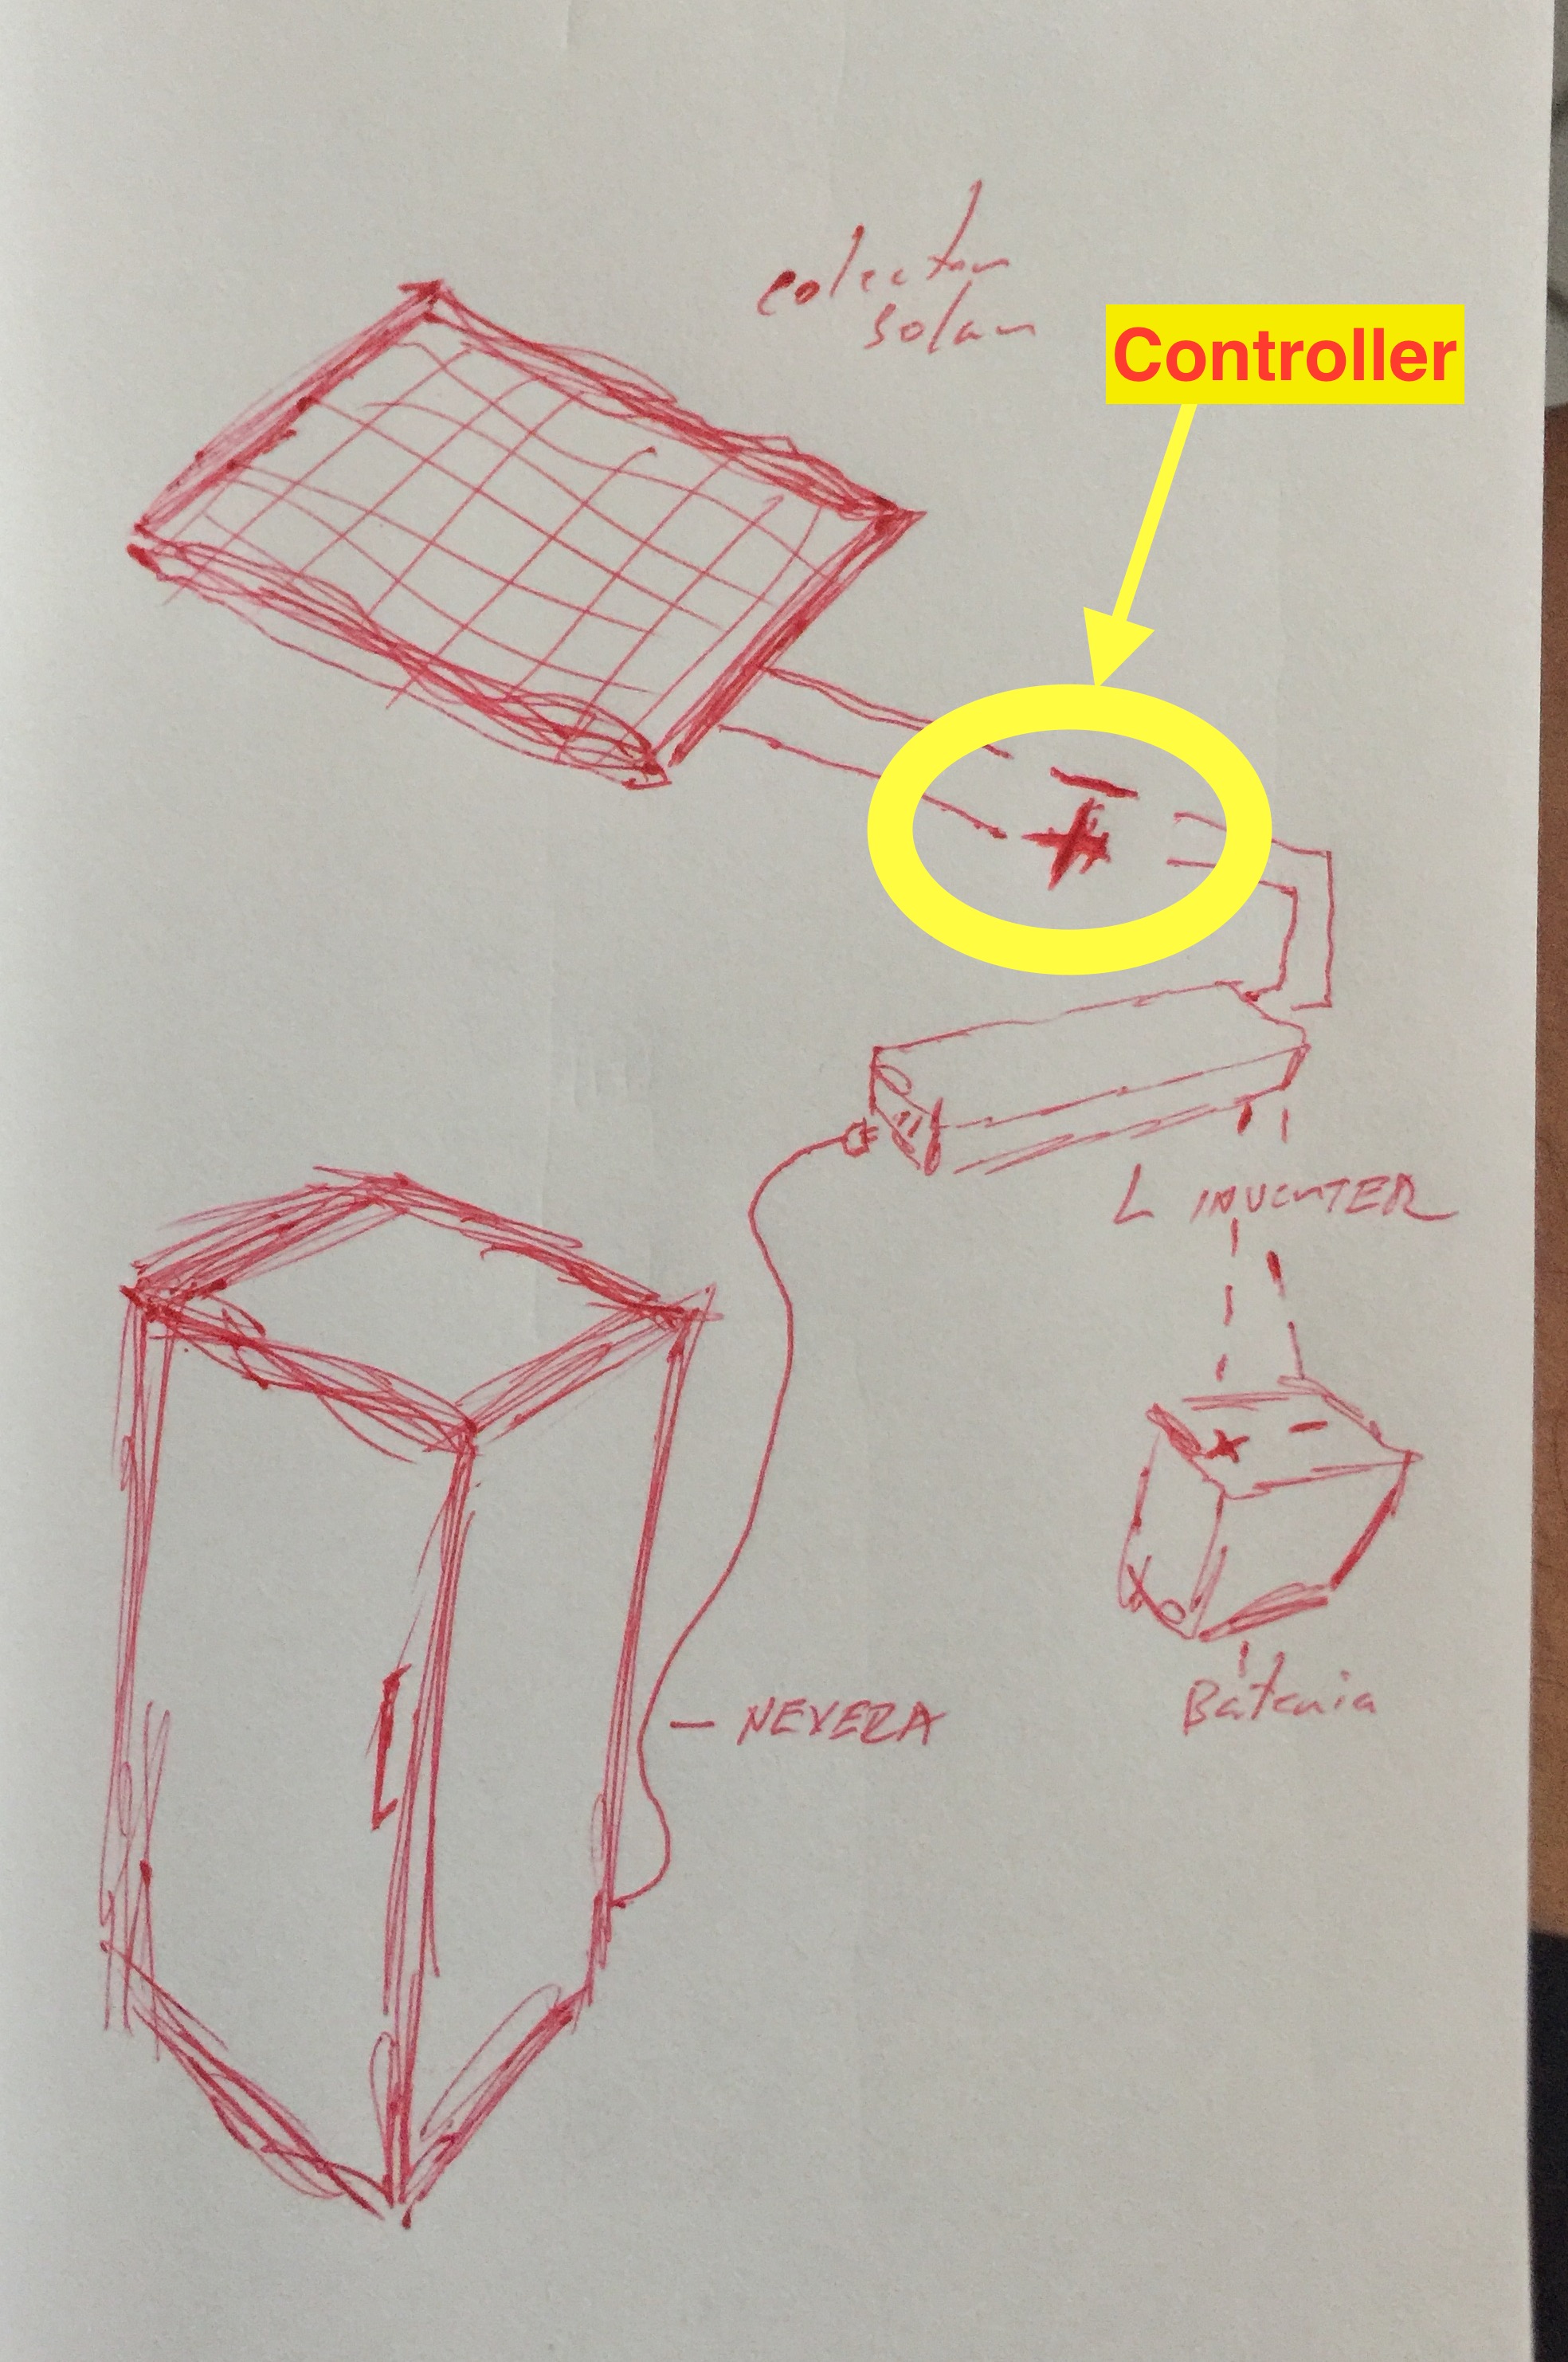 colector
solar
Controller
− +
INVERTER
+ −
NEVERA
Bateria